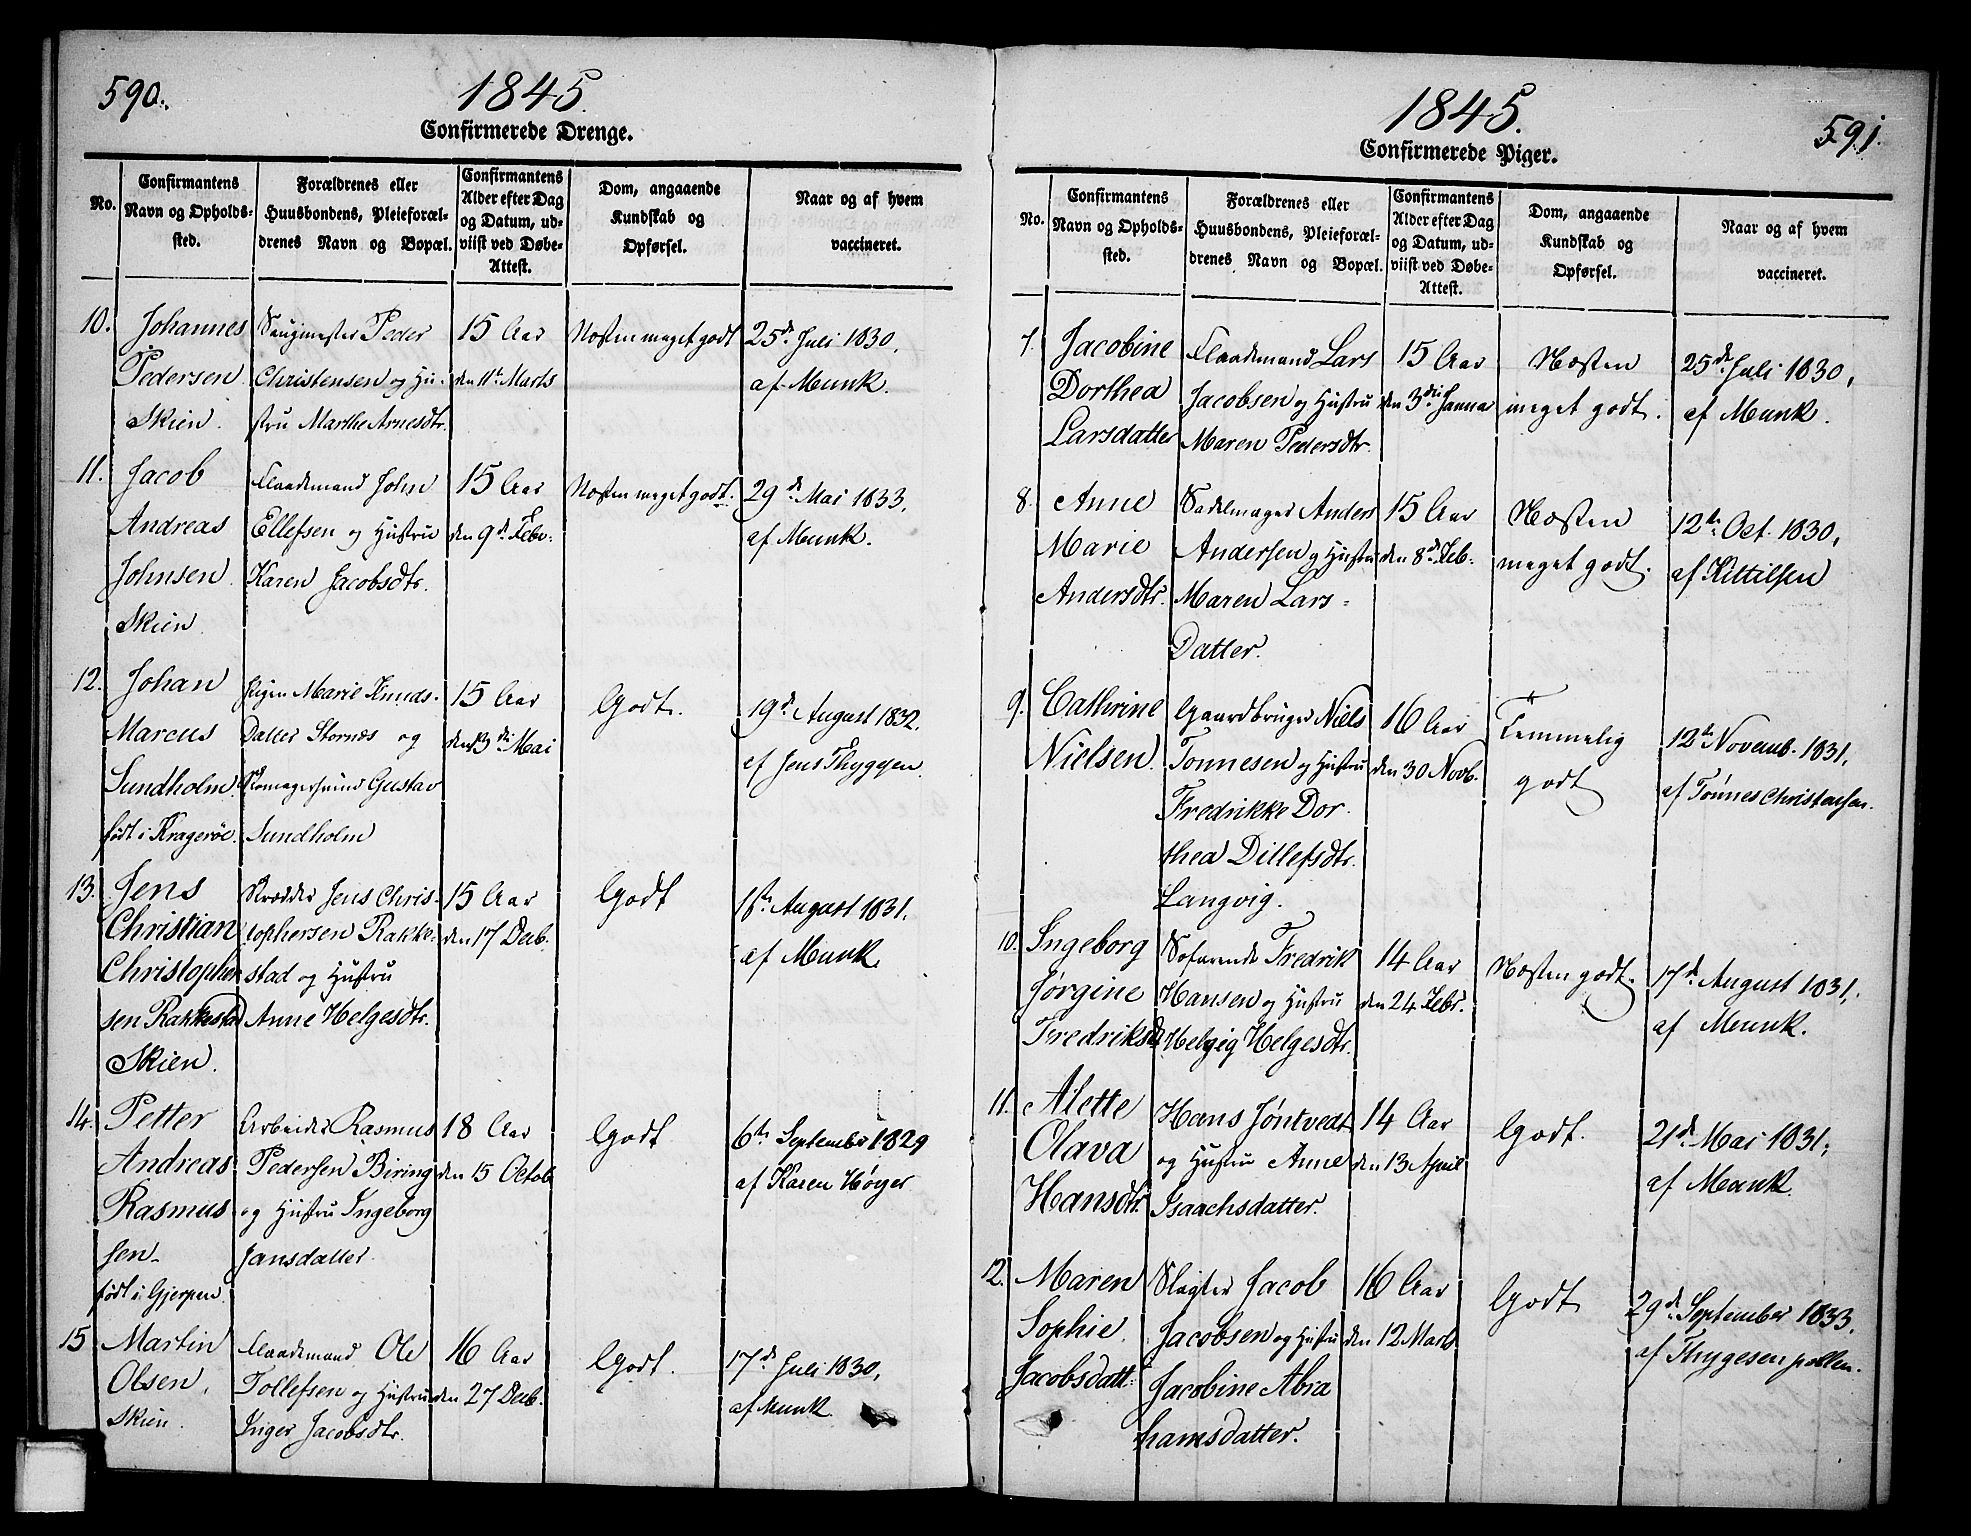 590.
1845.
Confirmerede Drenge.
No.
Confirmantens
Navn og Opholds-
sted.
Forældrenes eller
Huusbondens, Pleieforæl-
drenes Navn og Bopæl.
Confirmantens
Alder efter Dag
og Datum, ud-
viist ved Døbe-
Attest.
Dom, angaaende
Kundskab og
Opførsel.
Naar og af hvem
vaccineret.
10.
Johannes
Pedersen
Skien.
Saugmester Peder
Christensen og Hu-
stru Marthe Arnesdtr.
15 Aar
den 11te Marts
Næsten meget godt
25de Juli 1830,
af Munk.
11.
Jacob
Andreas
Johnsen
Skien.
Flaademand John
Ellefsen og Hustru
Karen Jacobsdtr.
15 Aar
den 9de Febr.
Næsten meget godt.
29de Mai 1833,
af Munk.
12.
Johan
Marcus
Sundholm
født i Kragerøe.
Pigen Marie Knuds-
Datter Stornæs og
Skomagersvend Gustav
Sundholm
15 Aar
den 3die Mai
Godt.
19de August 1832.
af Jens Thyggesen.
13.
Jens
Christian
Christopher
sen Rakkestad
Skien.
Skræder Jens Chris-
tophersen Rakke-
stad og Hustru
Anne Helgesdtr.
15 Aar
den 17 Decb.
Godt
18te August 1831.
af Munk.
14.
Petter
Andreas
Rasmus
sen
født i Gjerpen.
Arbeider Rasmus
Pedersen Biring
og Hustru Ingeborg
Jansdatter
18 Aar
den 15 Octob
Godt
6te September 1829
af Karen Høyer
15
Martin
Olsen,
Skien.
Flaademand Ole
Tollefsen og Hustru
Inger Jacobsdtr.
16 Aar
den 27 Decb.
Godt.
17de Juli 1830,
af Munk.
1845.
591.
Confirmerede Piger.
No.
Confirmantens
Navn og Opholds-
sted.
Forældrenes eller
Huusbondens, Pleieforæl-
drenes Navn og Bopæl.
Confirmantens
Alder efter Dag
og Datum, ud-
viist ved Døbe-
Attest.
Dom, angaaende
Kundskab og
Opførsel.
Naar og af hvem
vaccineret.
7.
Jacobine
Dorthea
Larsdatter
Flaademand Lars
Jacobsen og Hustru
Maren Pedersdtr.
15 Aar
den 3die Janua
Næsten
meget godt.
25de Juli 1830,
af Munk.
8.
Anne
Marie
Andersdtr.
Sadelmager Anders
Andersen og Hustru
Maren Lars-
Datter.
15 Aar
den 8de Feb.
Næsten
meget godt.
12te Oct. 1830,
af Kittilsen
9.
Cathrine
Nielsen.
Gaardbruger Niels
Tønnesen og Hustru
Fredrikke Dor-
thea Dillefsdtr.
Langvig.
16 Aar
den 30 Novb.
Temmelig
godt
12te Novemb. 1831,
af Tønnes Christensen.
10.
Ingeborg
Jørgine
Fredriksd.
Søfarende Fredrik
Hansen og Hustru
Helvig Helgesdtr.
14 Aar
den 24 Febr.
Næsten godt.
17de August 1831.
af Munk.
11.
Alette
Olava
Hansdtr.
Hans Jøntvedt
og Hustru Anne
Isaachsdatter.
14 Aar
den 13 April
Godt.
21de Mai 1831,
af Munk.
12.
Maren
Sophie.
Jacobsdatt:
Slagter Jacob
Jacobsen og Hustru
Jacobine Abra
hamsdatter.
16 Aar
den 12 Marts
Godt
29de September 1833,
af Thygesen pollen.